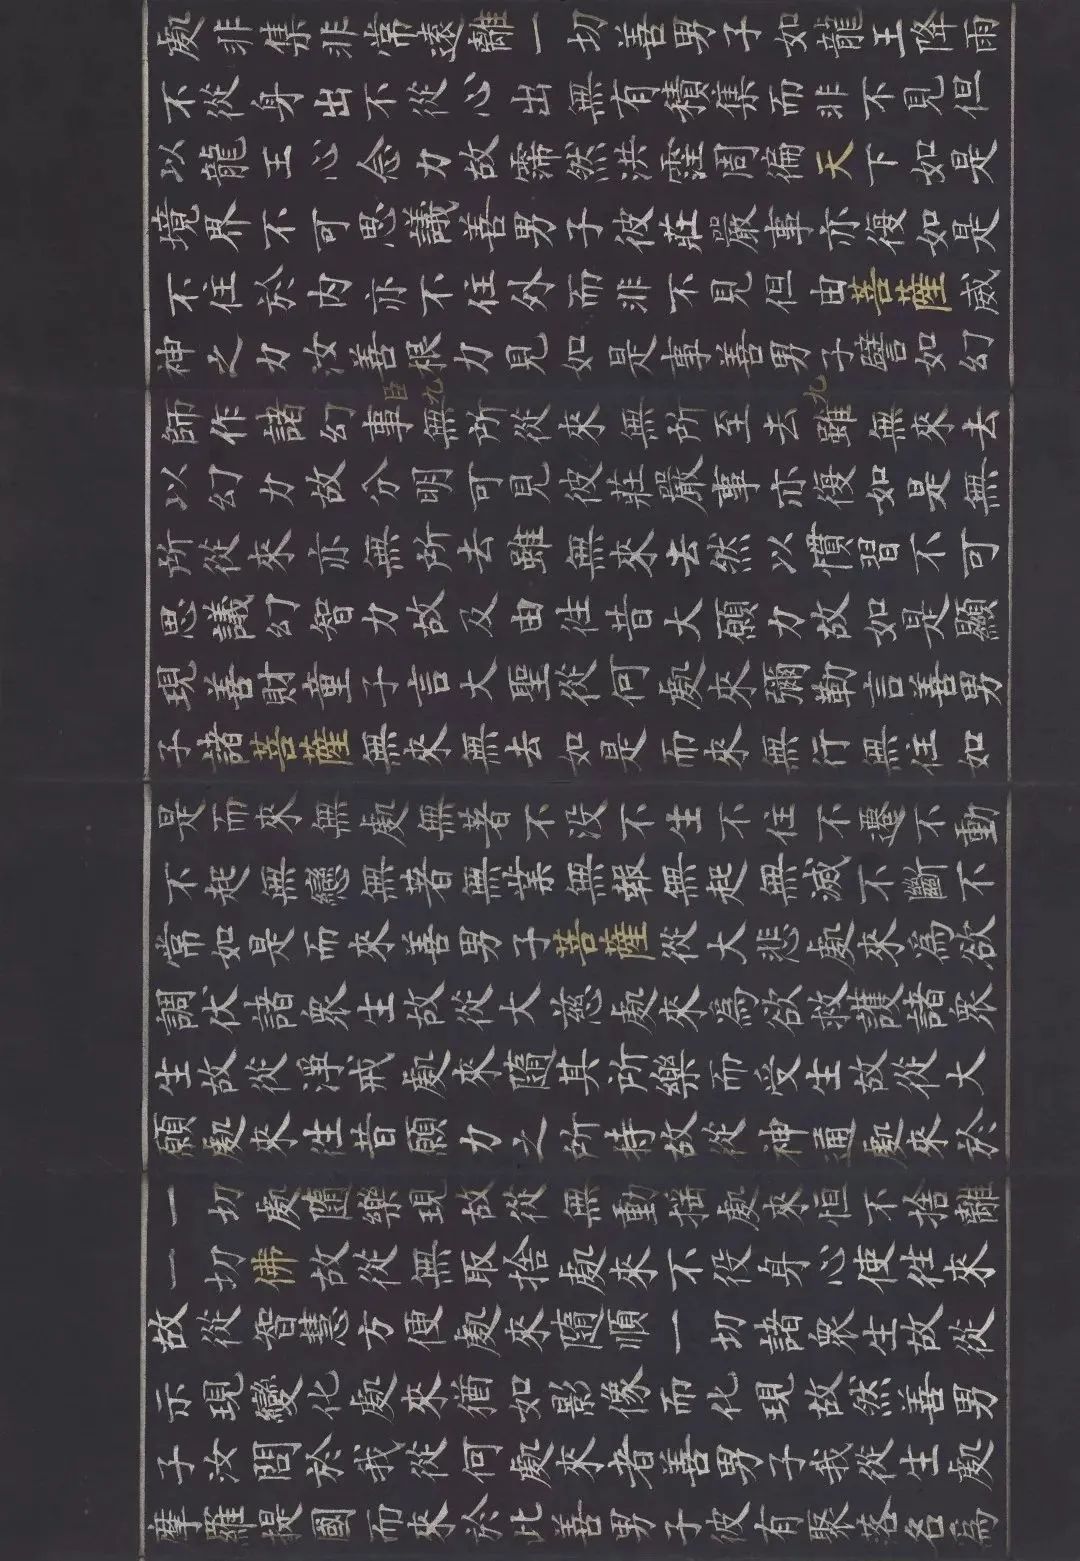 處非集非常遠離一切善男子如龍王降雨
不從身出不從心出無有積集而非不見但
以龍王心念力故霈然洪霔周徧天下如是
境界不可思議善男子彼莊嚴事亦復如是
不住於內亦不住外而非不見但由菩薩威
神之力汝善根力見如是事善男子譬如幻
師作諸幻事無所從來無所至去雖無來去
以幻力故分明可見彼莊嚴事亦復如是無
所從來亦無所去雖無來去然以慣習不可
思議幻智力故及由往昔大願力故如是顯
現善財童子言大聖從何處來彌勒言善男
子諸菩薩無來無去如是而來無行無住如
是而來無處無著不沒不生不住不遷不動
不起無戀無著無業無報無起無滅不斷不
常如是而來善男子菩薩從大悲處來為欲
調伏諸眾生故從大慈處來為欲救護諸眾
生故從淨戒處來隨其所樂而受生故從大
願處來往昔願力之所持故從神通處來於
一切處隨樂現故從無動搖處來恒不捨離
一切佛故從無取捨處來不役身心使往來
故從智慧方便處來隨順一切諸眾生故從
示現變化處來猶如影像而化現故然善男
子汝問於我從何處來者善男子我從生處
摩羅提國而來於此善男子彼有聚落名為